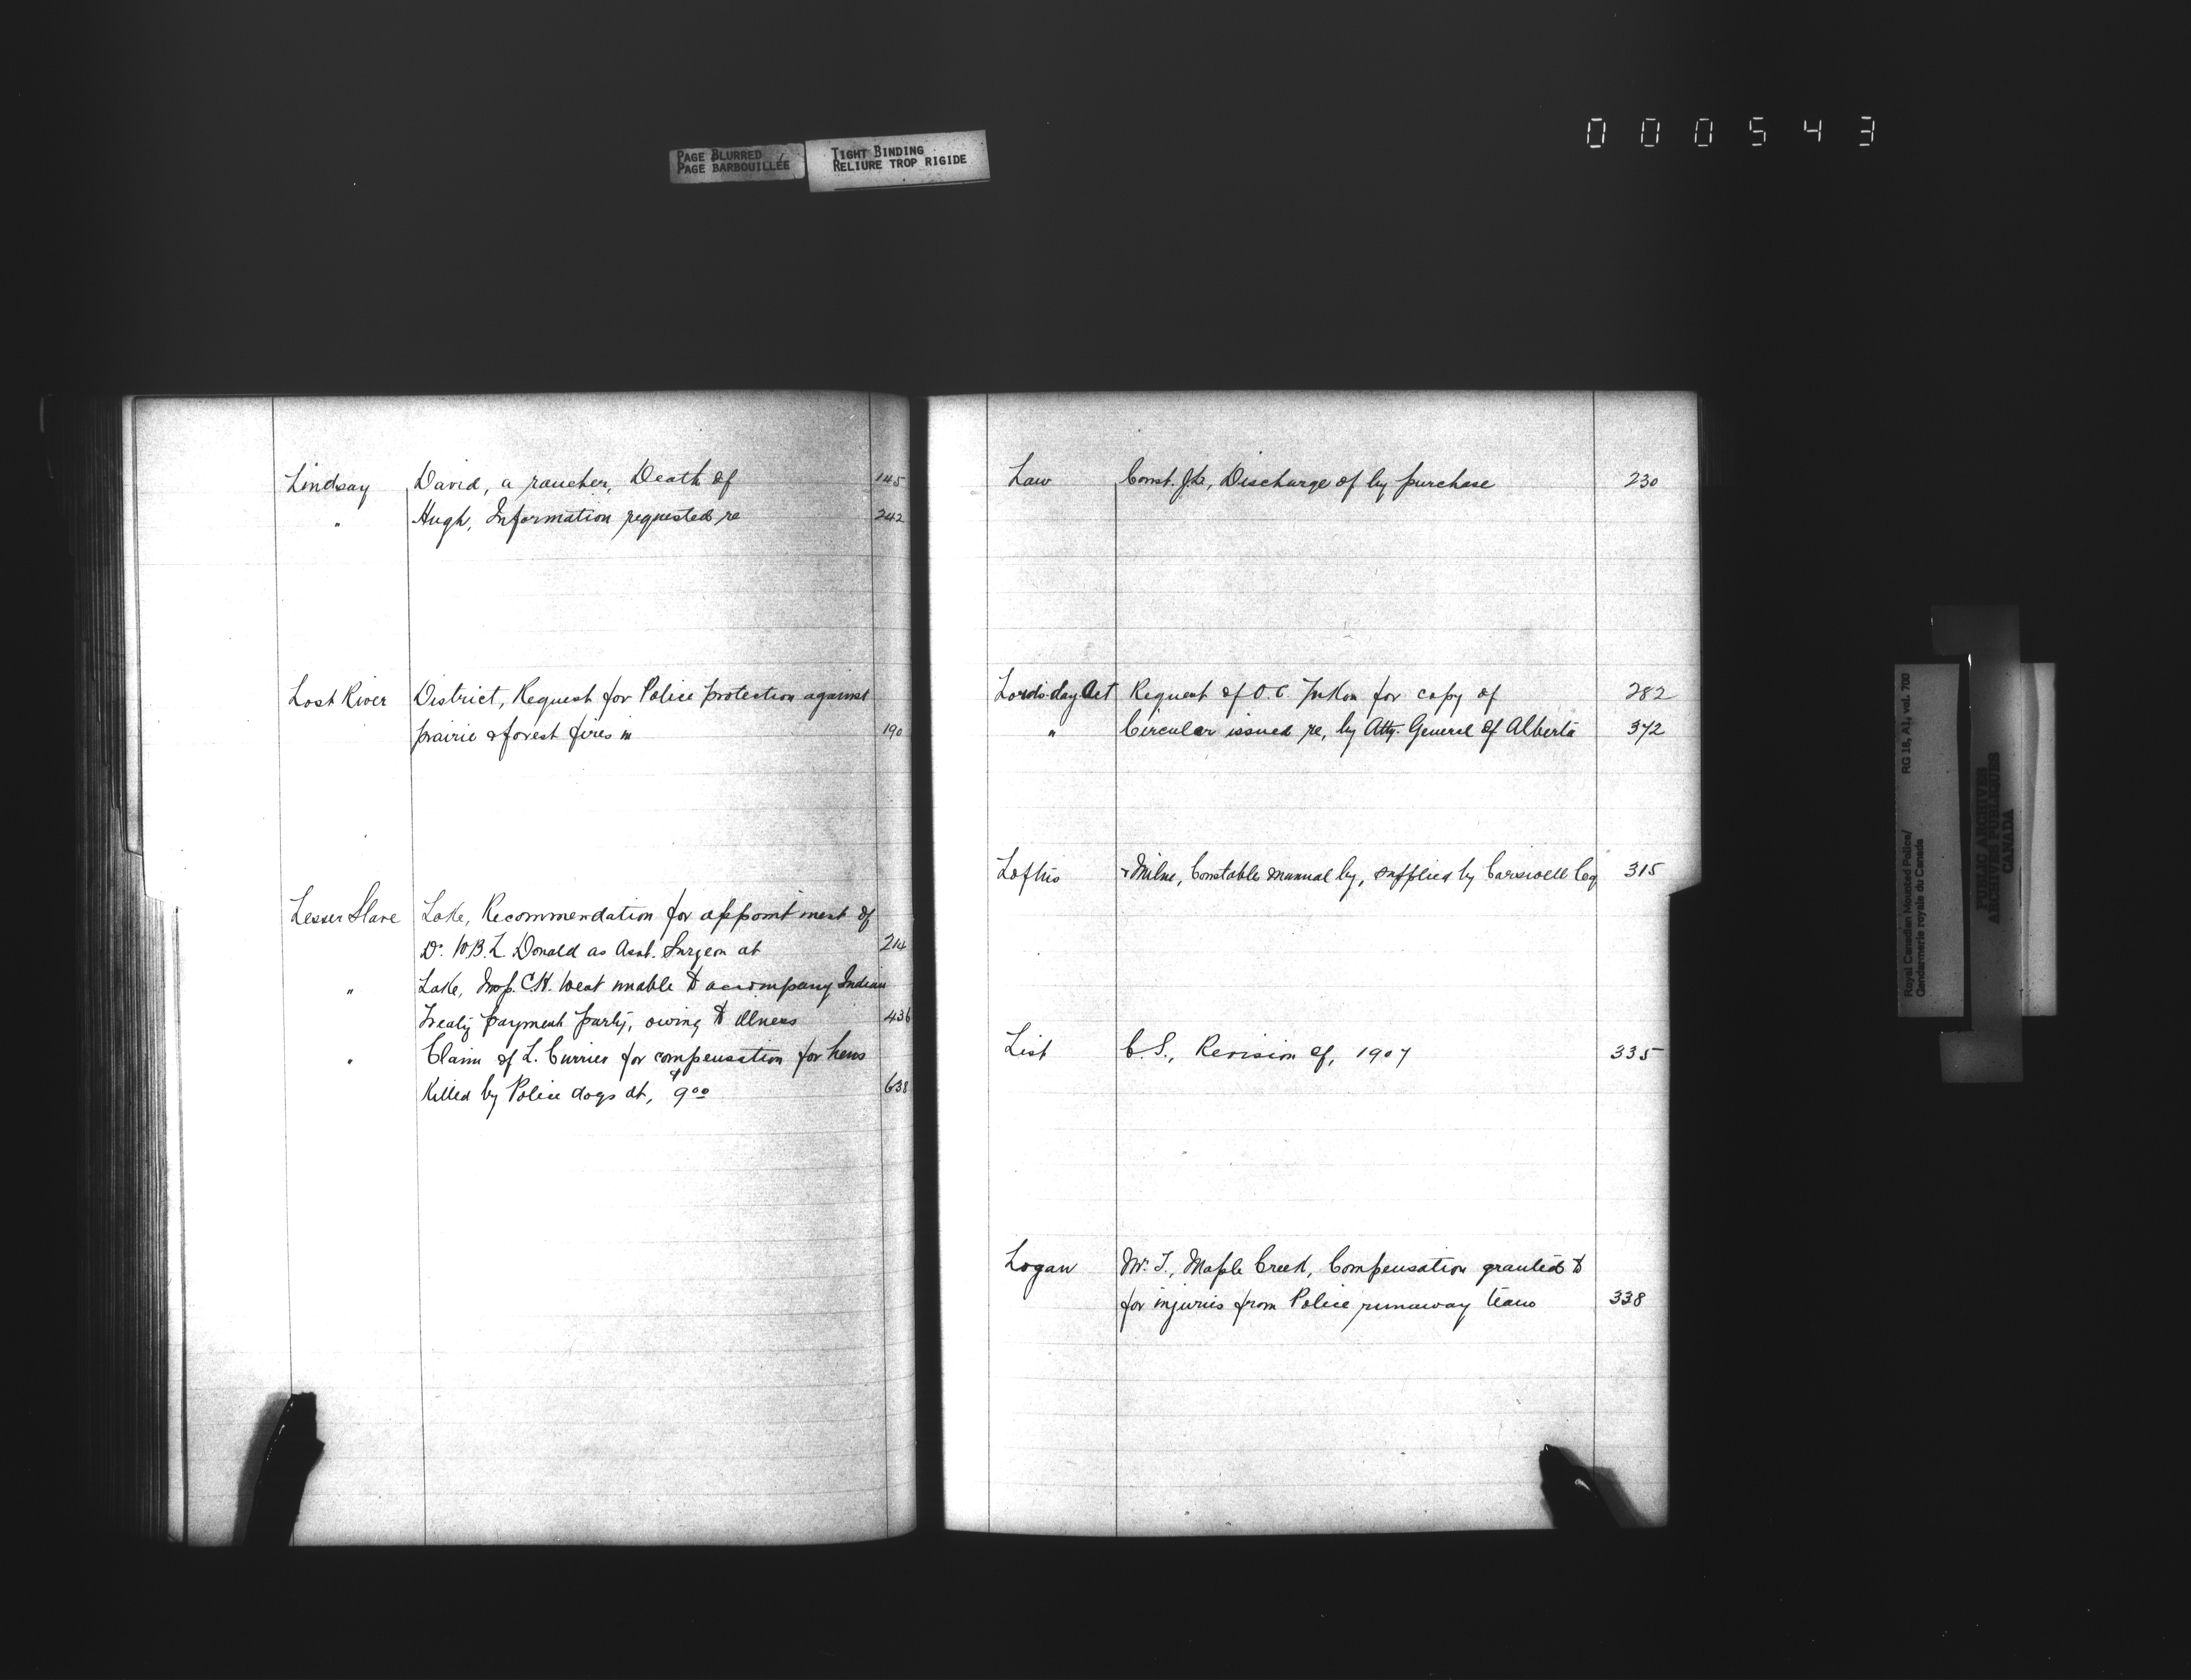 PAGE BLURRED
PAGE BARBOUILLÉE
TIGHT BINDING
RELIURE TROP RIGIDE
000543
Lindsay David, a rancher, Death of 145
" Hugh, Information requested re 242
Lost River District, Request for Police protection against
prairie & forest fires in 190
Lesser Slave Lake, Recommendation for appointment of
Dr. W.B.L. Donald as Asst. Surgeon at 214
" Lake, Insp. C.H. West unable to accompany Indian
Treaty payment party, owing to illness 436
" Claim of L. Currier for compensation for hens
killed by Police dogs at, $9.00 638
Law Const. Discharge of by purchase 230
Lord's day Act Request of O.C. Yukon for copy of 282
" Circular issued re, by Atty. General of Alberta 372
Loftus & Milne, Constable manual by, supplied by Carswell Coy 315
List C.S., Revision of, 1907 335
Logan Mr. T., Maple Creek, Compensation granted to
for injuries from Police runaway team 338
Royal Canadian Mounted Police/
Gendarmerie royale du Canada
RG 18, A1, vol. 700
PUBLIC ARCHIVES
ARCHIVES PUBLIQUES
CANADA